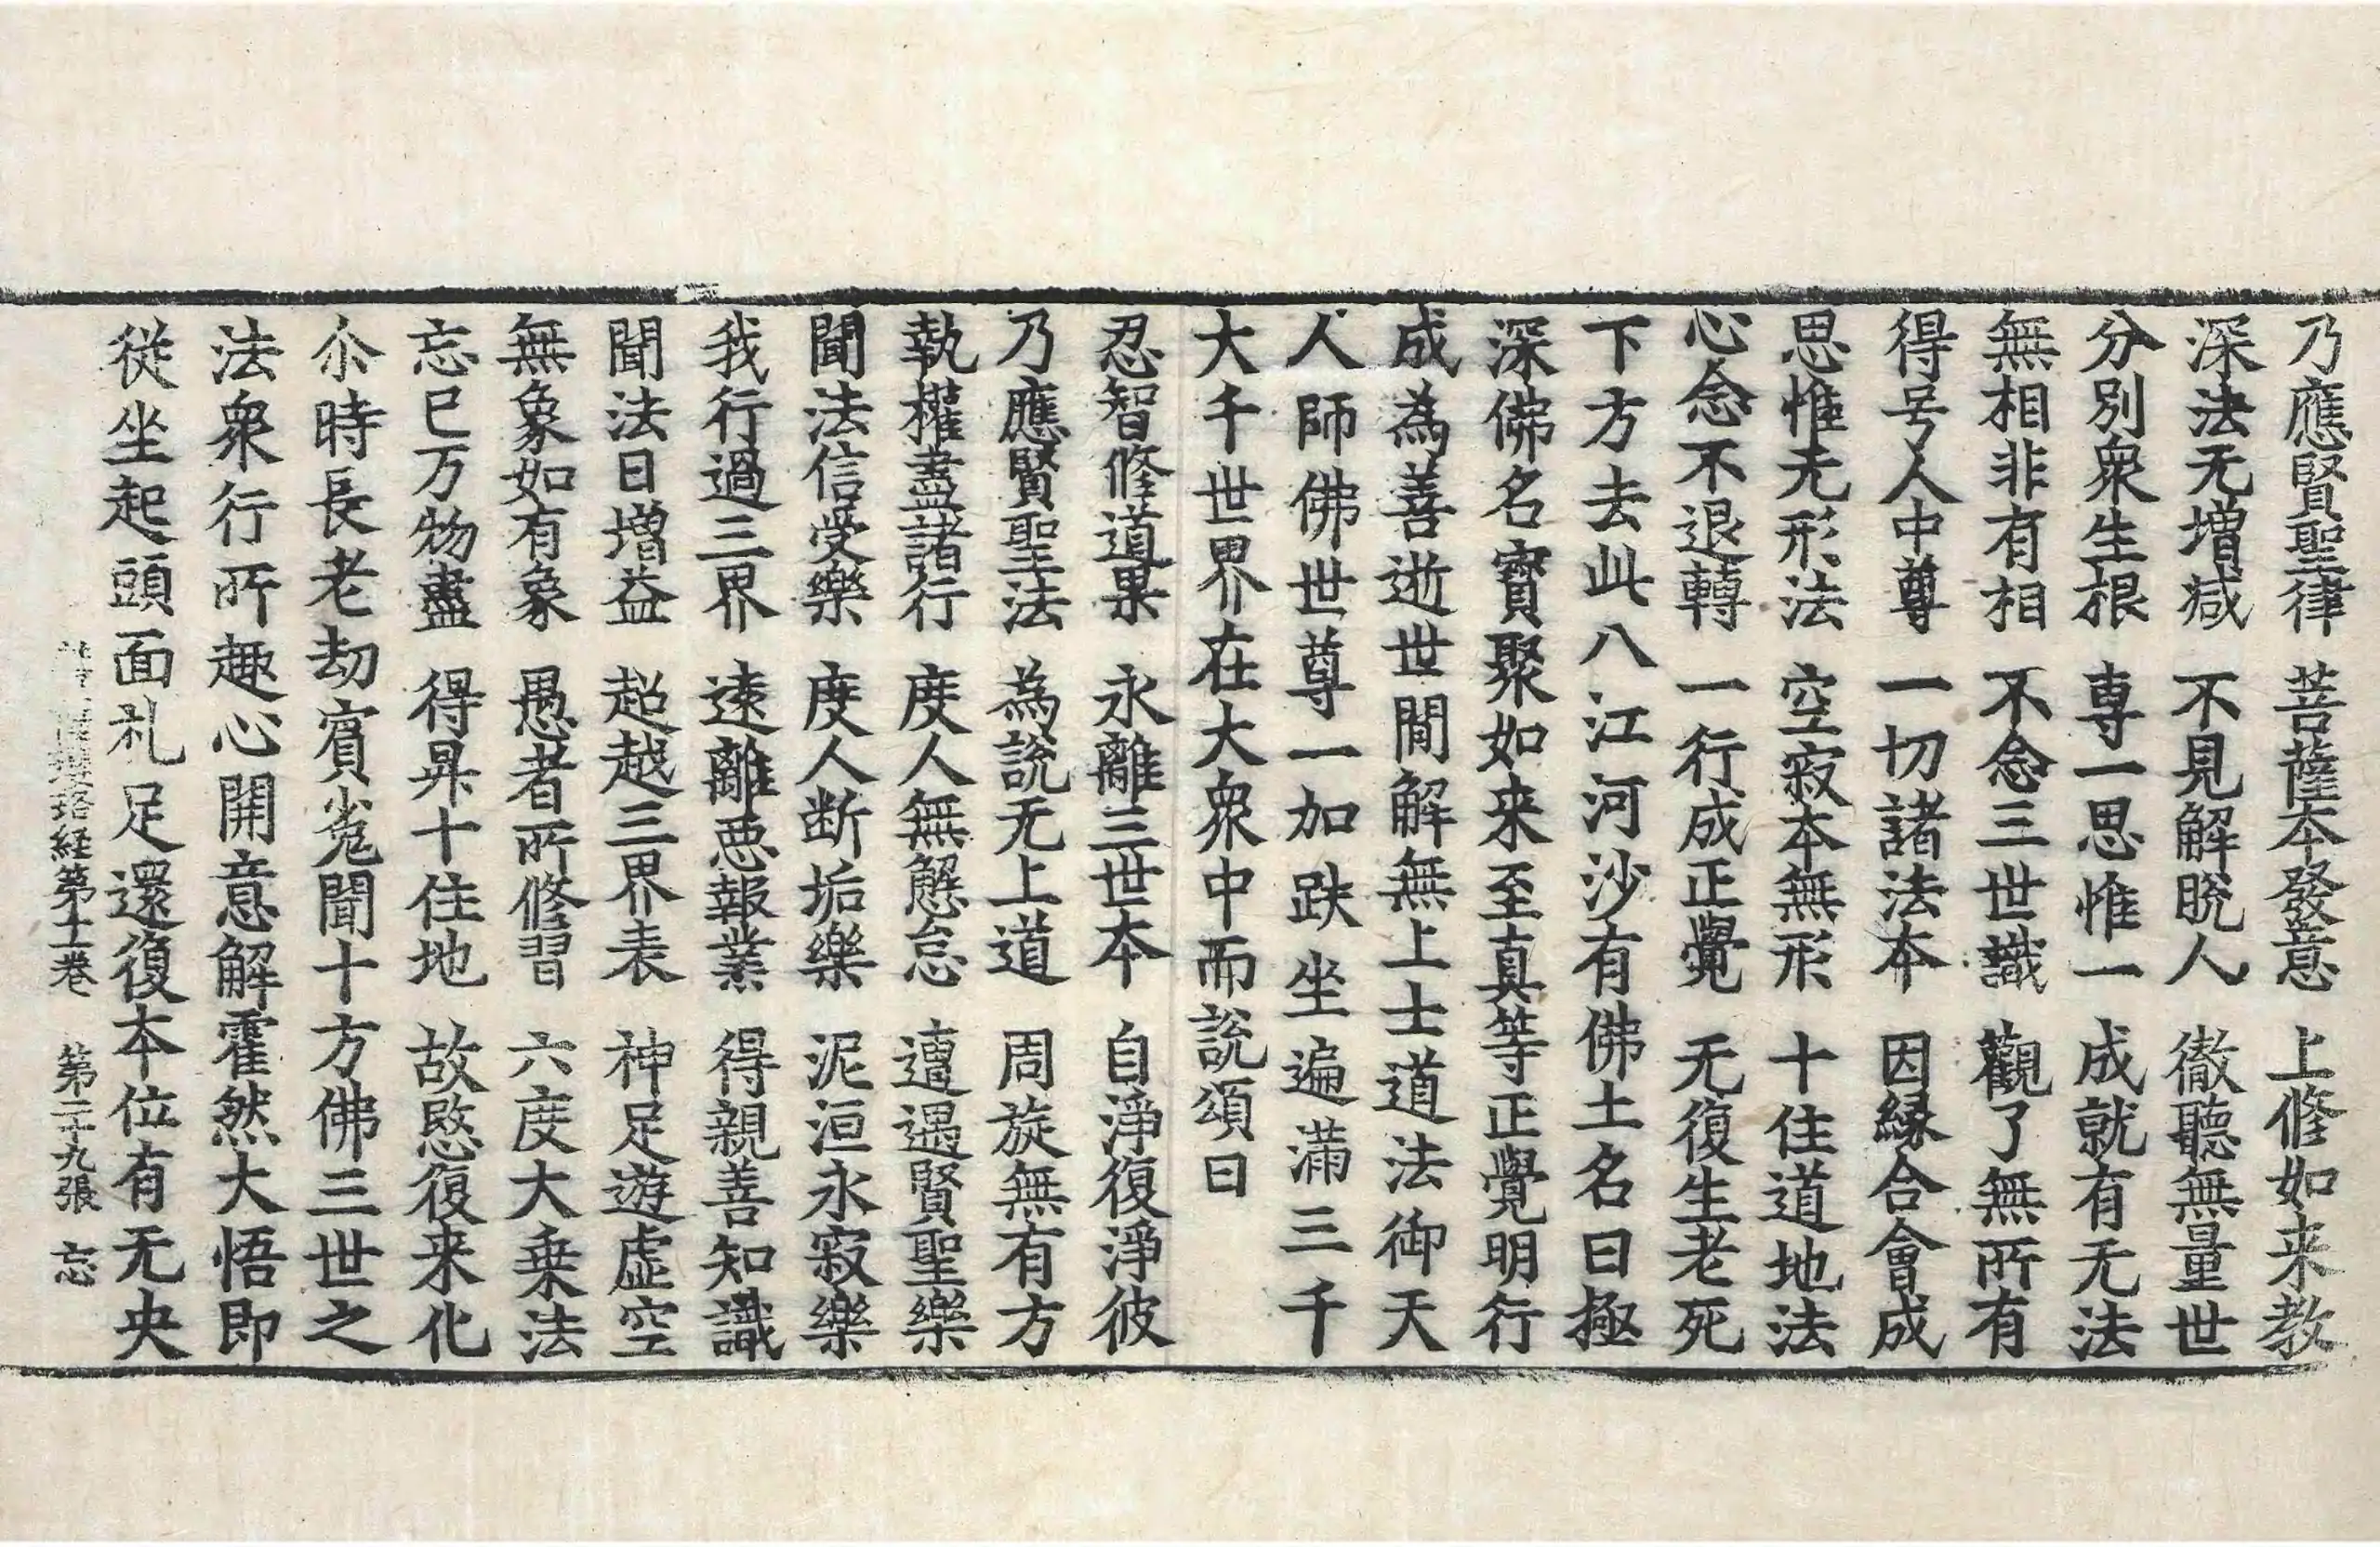 乃應賢聖律 菩薩本發意 上修如来教
深法无增減 不見解脫人 徹聽無量世
分別衆生根 專一思惟一 成就有无法
無相非有相 不念三世識 觀了無所有
得号人中尊 一切諸法本 因緣合會成
思惟无形法 空寂本無形 十住道地法
心念不退轉 一行成正覺 无復生老死
下方去此八江河沙有佛土名曰極
深佛名寶聚如来至真等正覺明行
成為善逝世間解無上士道法御天
人師佛世尊一加趺坐遍滿三千
大千世界在大衆中而說頌曰
忍智修道果 永離三世本 自淨復淨彼
乃應賢聖法 為說无上道 周旋無有方
執權盡諸行 度人無懈怠 遭遇賢聖樂
聞法信受樂 度人断垢樂 泥洹永寂樂
我行過三界 遠離惡報業 得親善知識
聞法日增益 超越三界表 神足遊虛空
無象如有象 愚者所修習 六度大乗法
忘已万物盡 得昇十住地 故愍復来化
尒時長老劫賓㝹聞十方佛三世之
法衆行所趣心開意解霍然大悟即
從坐起頭面礼足還復本位有无央
瓔珞経第十二卷 第二十九張 忘